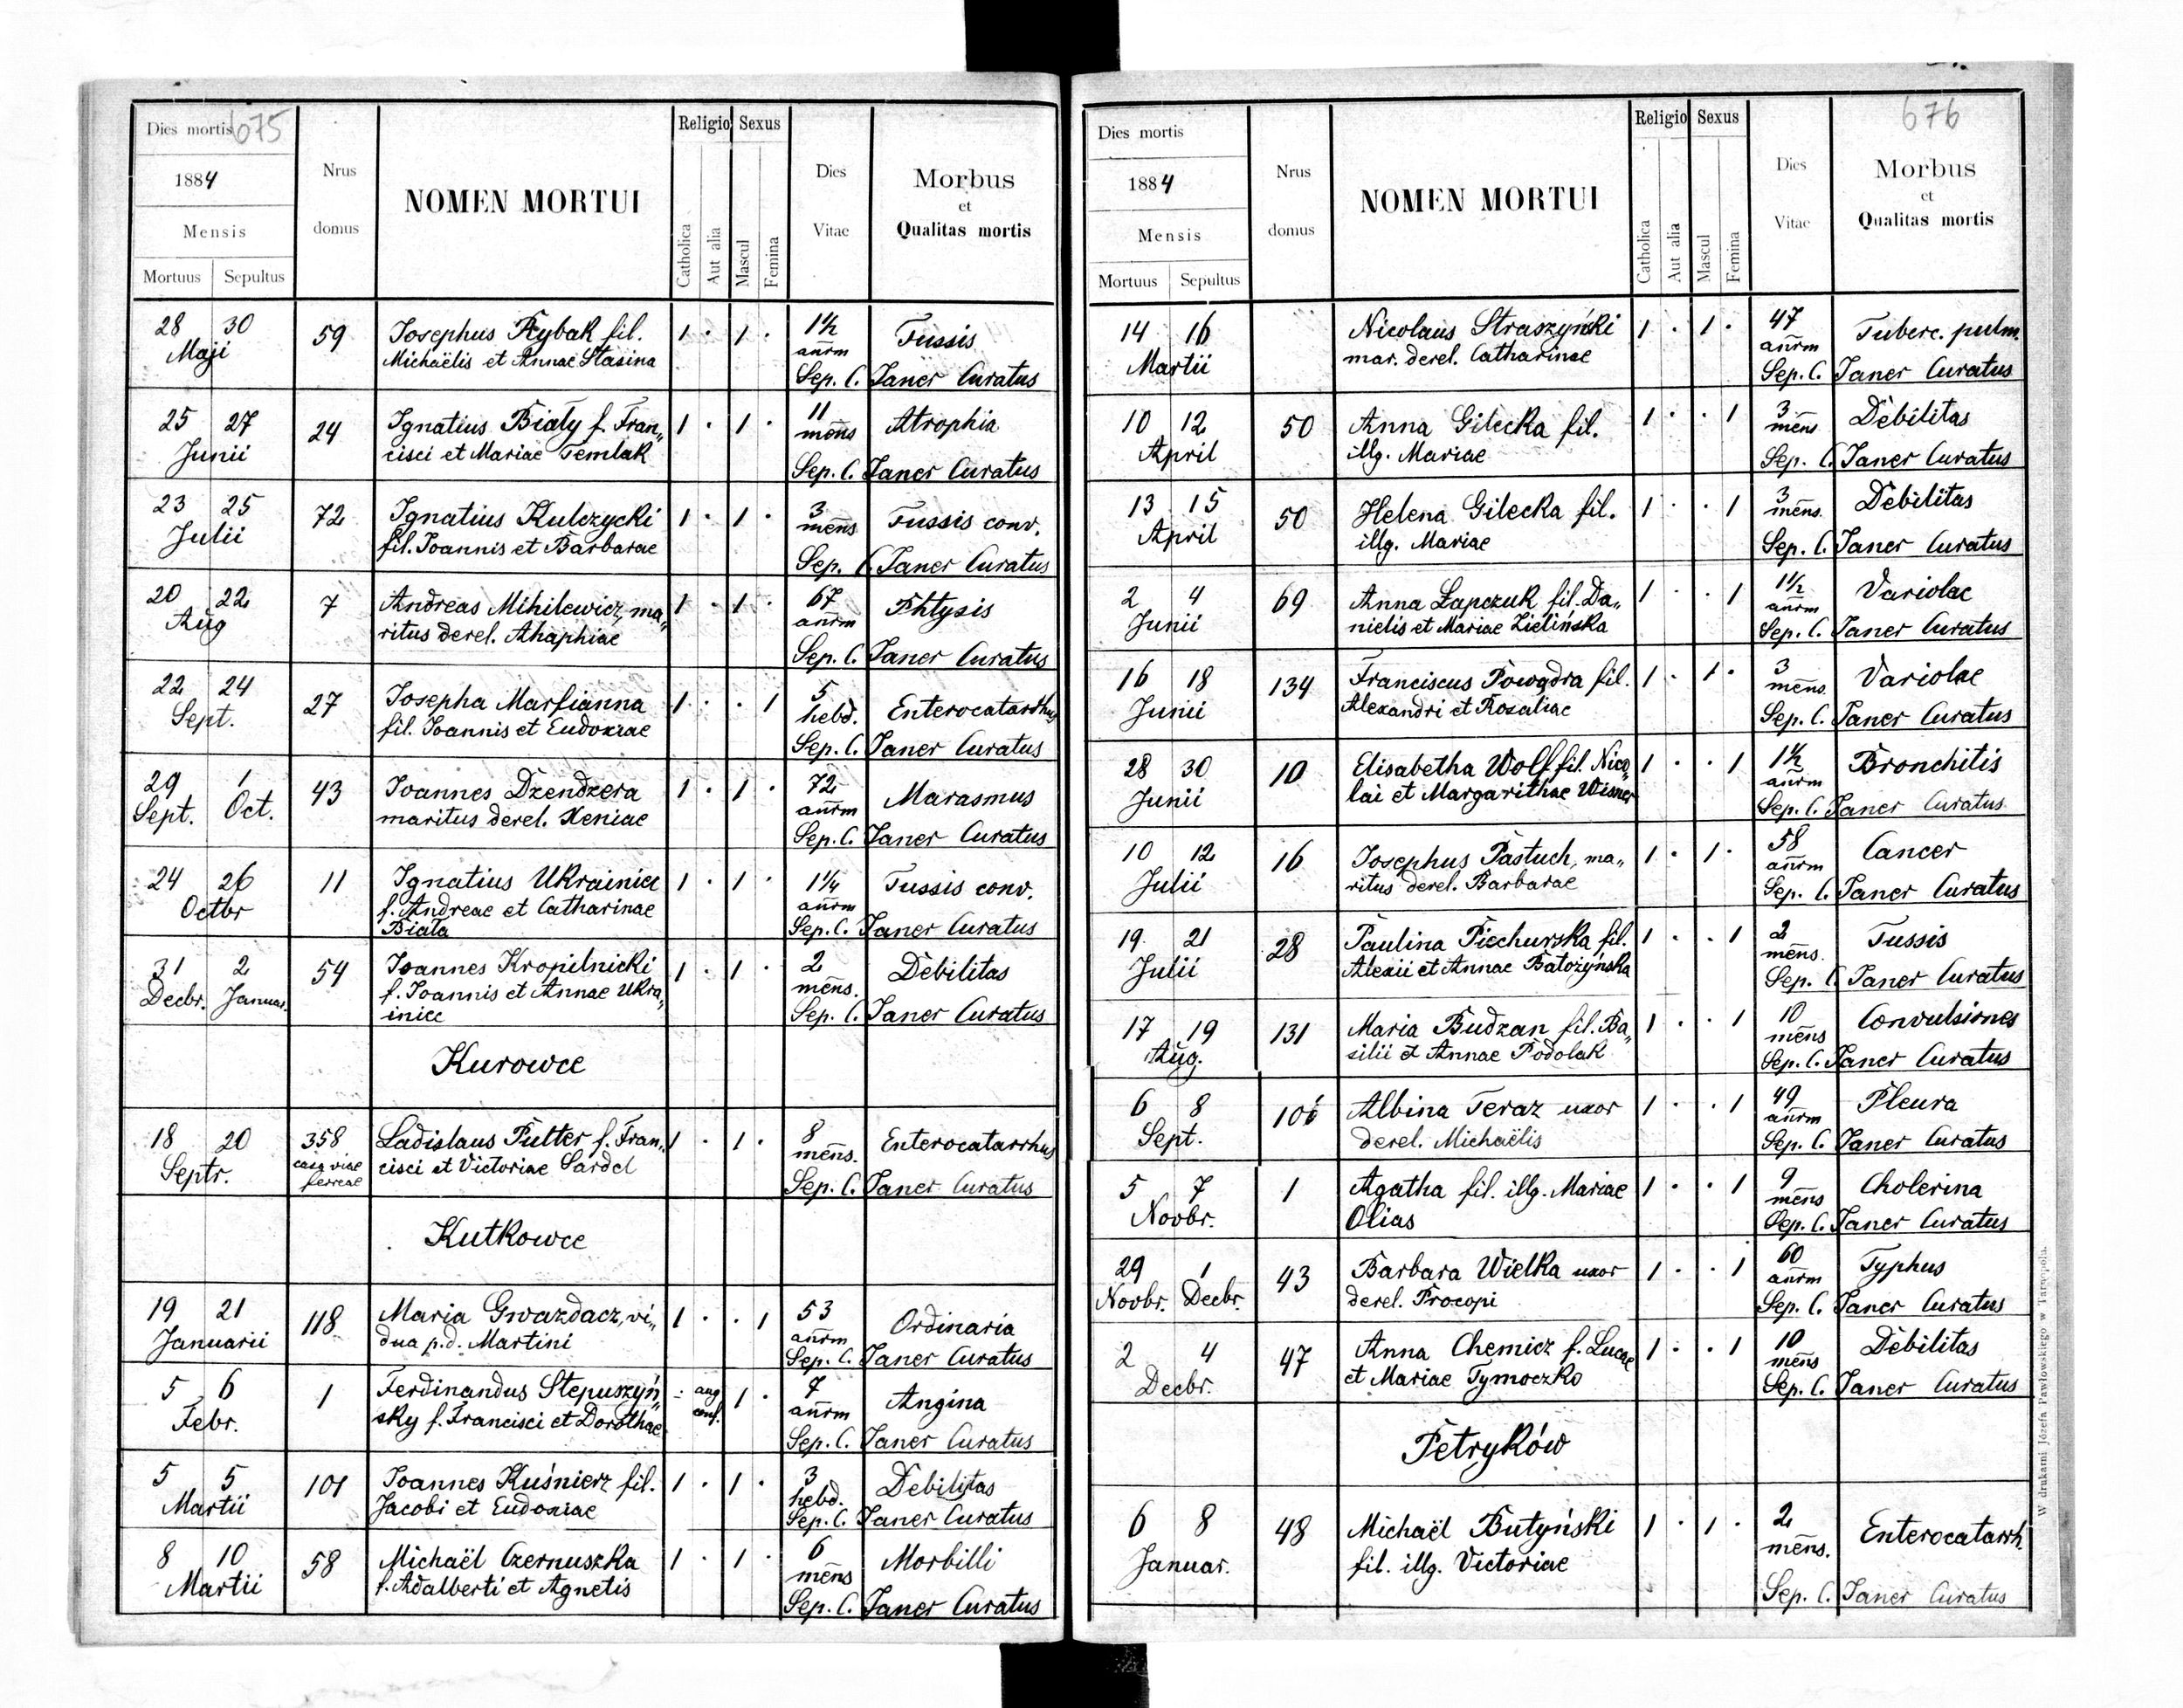 675
Dies mortis
1884
Mensis
Mortuus Sepultus
Nrus domus
NOMEN MORTUI
Religio Sexus
Catholica Aut alia Mascul Femina
Dies Vitae
Morbus
et
Qualitas mortis
28 30 59 Josephus Rybak fil. 1 · 1 · 1½ Tussis
Maji Michaëlis et Annae Stasina annrm
Sep. C. Janer Curatus
25 27 24 Ignatius Biały f. Fran„ 1 · 1 · 11 Atrophia
Junii cisci et Mariae Temlak mens
Sep. C. Janer Curatus
23 25 72 Ignatius Kulczycki 1 · 1 · 3 Tussis conv.
Julii fil. Joannis et Barbarae mens
Sep. C. Janer Curatus
20 22 7 Andreas Mihilewicz, ma„ 1 · 1 · 67 Phtysis
Aug ritus derel. Ahaphiae annrm
Sep. C. Janer Curatus
22 24 27 Josepha Marfianna 1 · · 1 5 Enterocatarrhus
Sept. fil. Joannis et Eudoxiae hebd.
Sep. C. Janer Curatus
29 1 43 Joannes Dzendzera 1 · 1 · 72 Marasmus
Sept. Oct. maritus derel. Xeniae annrm
Sep. C. Janer Curatus
24 26 11 Ignatius Ukrainiec 1 · 1 · 1¼ Tussis conv.
Octbr f. Andreae et Catharinae annrm
Biała Sep. C. Janer Curatus
31 2 54 Joannes Kropilnicki 1 · 1 · 2 Debilitas
Decbr. Januar. f. Joannis et Annae Ukra„ mens.
iniec Sep. C. Janer Curatus
Kurowce
18 20 358 Ladislaus Putter f. Fran„ 1 · 1 · 8 Enterocatarrhus
Septr. viae ferreae cisci et Victoriae Sardel mens.
Sep. C. Janer Curatus
Kutkowce
19 21 118 Maria Gwazdacz, vi„ 1 · · 1 53 Ordinaria
Januarii dua p.d. Martini annrm
Sep. C. Janer Curatus
5 6 1 Ferdinandus Stepuszyń„ · aug conf. 1 · 7 Angina
Febr. sky f. Francisci et Dorothae annrm
Sep. C. Janer Curatus
5 5 101 Joannes Kuśnierz fil. 1 · 1 · 3 Debilitas
Martii Jacobi et Eudoxiae hebd.
Sep. C. Janer Curatus
8 10 58 Michaël Czernuszka 1 · 1 · 6 Morbilli
Martii f. Adalberti et Agnetis mens
Sep. C. Janer Curatus
676
Dies mortis
1884
Mensis
Mortuus Sepultus
Nrus domus
NOMEN MORTUI
Religio Sexus
Catholica Aut alia Mascul Femina
Dies Vitae
Morbus
et
Qualitas mortis
14 16 Nicolaus Straszyński 1 · 1 · 47 Tuberc. pulm.
Martii mar. derel. Catharinae annrm
Sep. C. Janer Curatus
10 12 50 Anna Gilecka fil. 1 · · 1 3 Debilitas
April illg. Mariae mens
Sep. C. Janer Curatus
13 15 50 Helena Gilecka fil. 1 · · 1 3 Debilitas
April illg. Mariae mens.
Sep. C. Janer Curatus
2 4 69 Anna Łapczuk fil. Da„ 1 · · 1 1½ Variolae
Junii nielis et Mariae Zielińska annrm
Sep. C. Janer Curatus
16 18 134 Franciscus Powądra fil. 1 · 1 · 3 Variolae
Junii Alexandri et Rozaliae mens.
Sep. C. Janer Curatus
28 30 10 Elisabetha Wolf fil. Nico„ 1 · · 1 1½ Bronchitis
Junii lai et Margarithae Wisner annrm
Sep. C. Janer Curatus
10 12 16 Josephus Pastuch, ma„ 1 · 1 · 58 Cancer
Julii ritus derel. Barbarae annrm
Sep. C. Janer Curatus
19 21 28 Paulina Piechurska fil. 1 · · 1 2 Tussis
Julii Alexii et Annae Batożyńska mens.
Sep. C. Janer Curatus
17 19 131 Maria Budzan fil. Ba„ 1 · · 1 10 Convulsiones
Aug. silii et Annae Podolak mens
Sep. C. Janer Curatus
6 8 106 Albina Teraz uxor 1 · · 1 49 Pleura
Sept. derel. Michaëlis annrm
Sep. C. Janer Curatus
5 7 1 Agatha fil. illg. Mariae 1 · · 1 9 Cholerina
Novbr. Olias mens
Sep. C. Janer Curatus
29 1 43 Barbara Wielka uxor 1 · · 1 60 Typhus
Novbr. Decbr. derel. Procopi annrm
Sep. C. Janer Curatus
2 4 47 Anna Chemicz f. Lucae 1 · · 1 10 Debilitas
Decbr. et Mariae Tymoczko mens
Sep. C. Janer Curatus
Petryków
6 8 48 Michaël Butyński 1 · 1 · 2 Enterocatarrh.
Januar. fil. illg. Victoriae mens.
Sep. C. Janer Curatus
W drukarni Józefa Pawłowskiego w Tarnopolu.